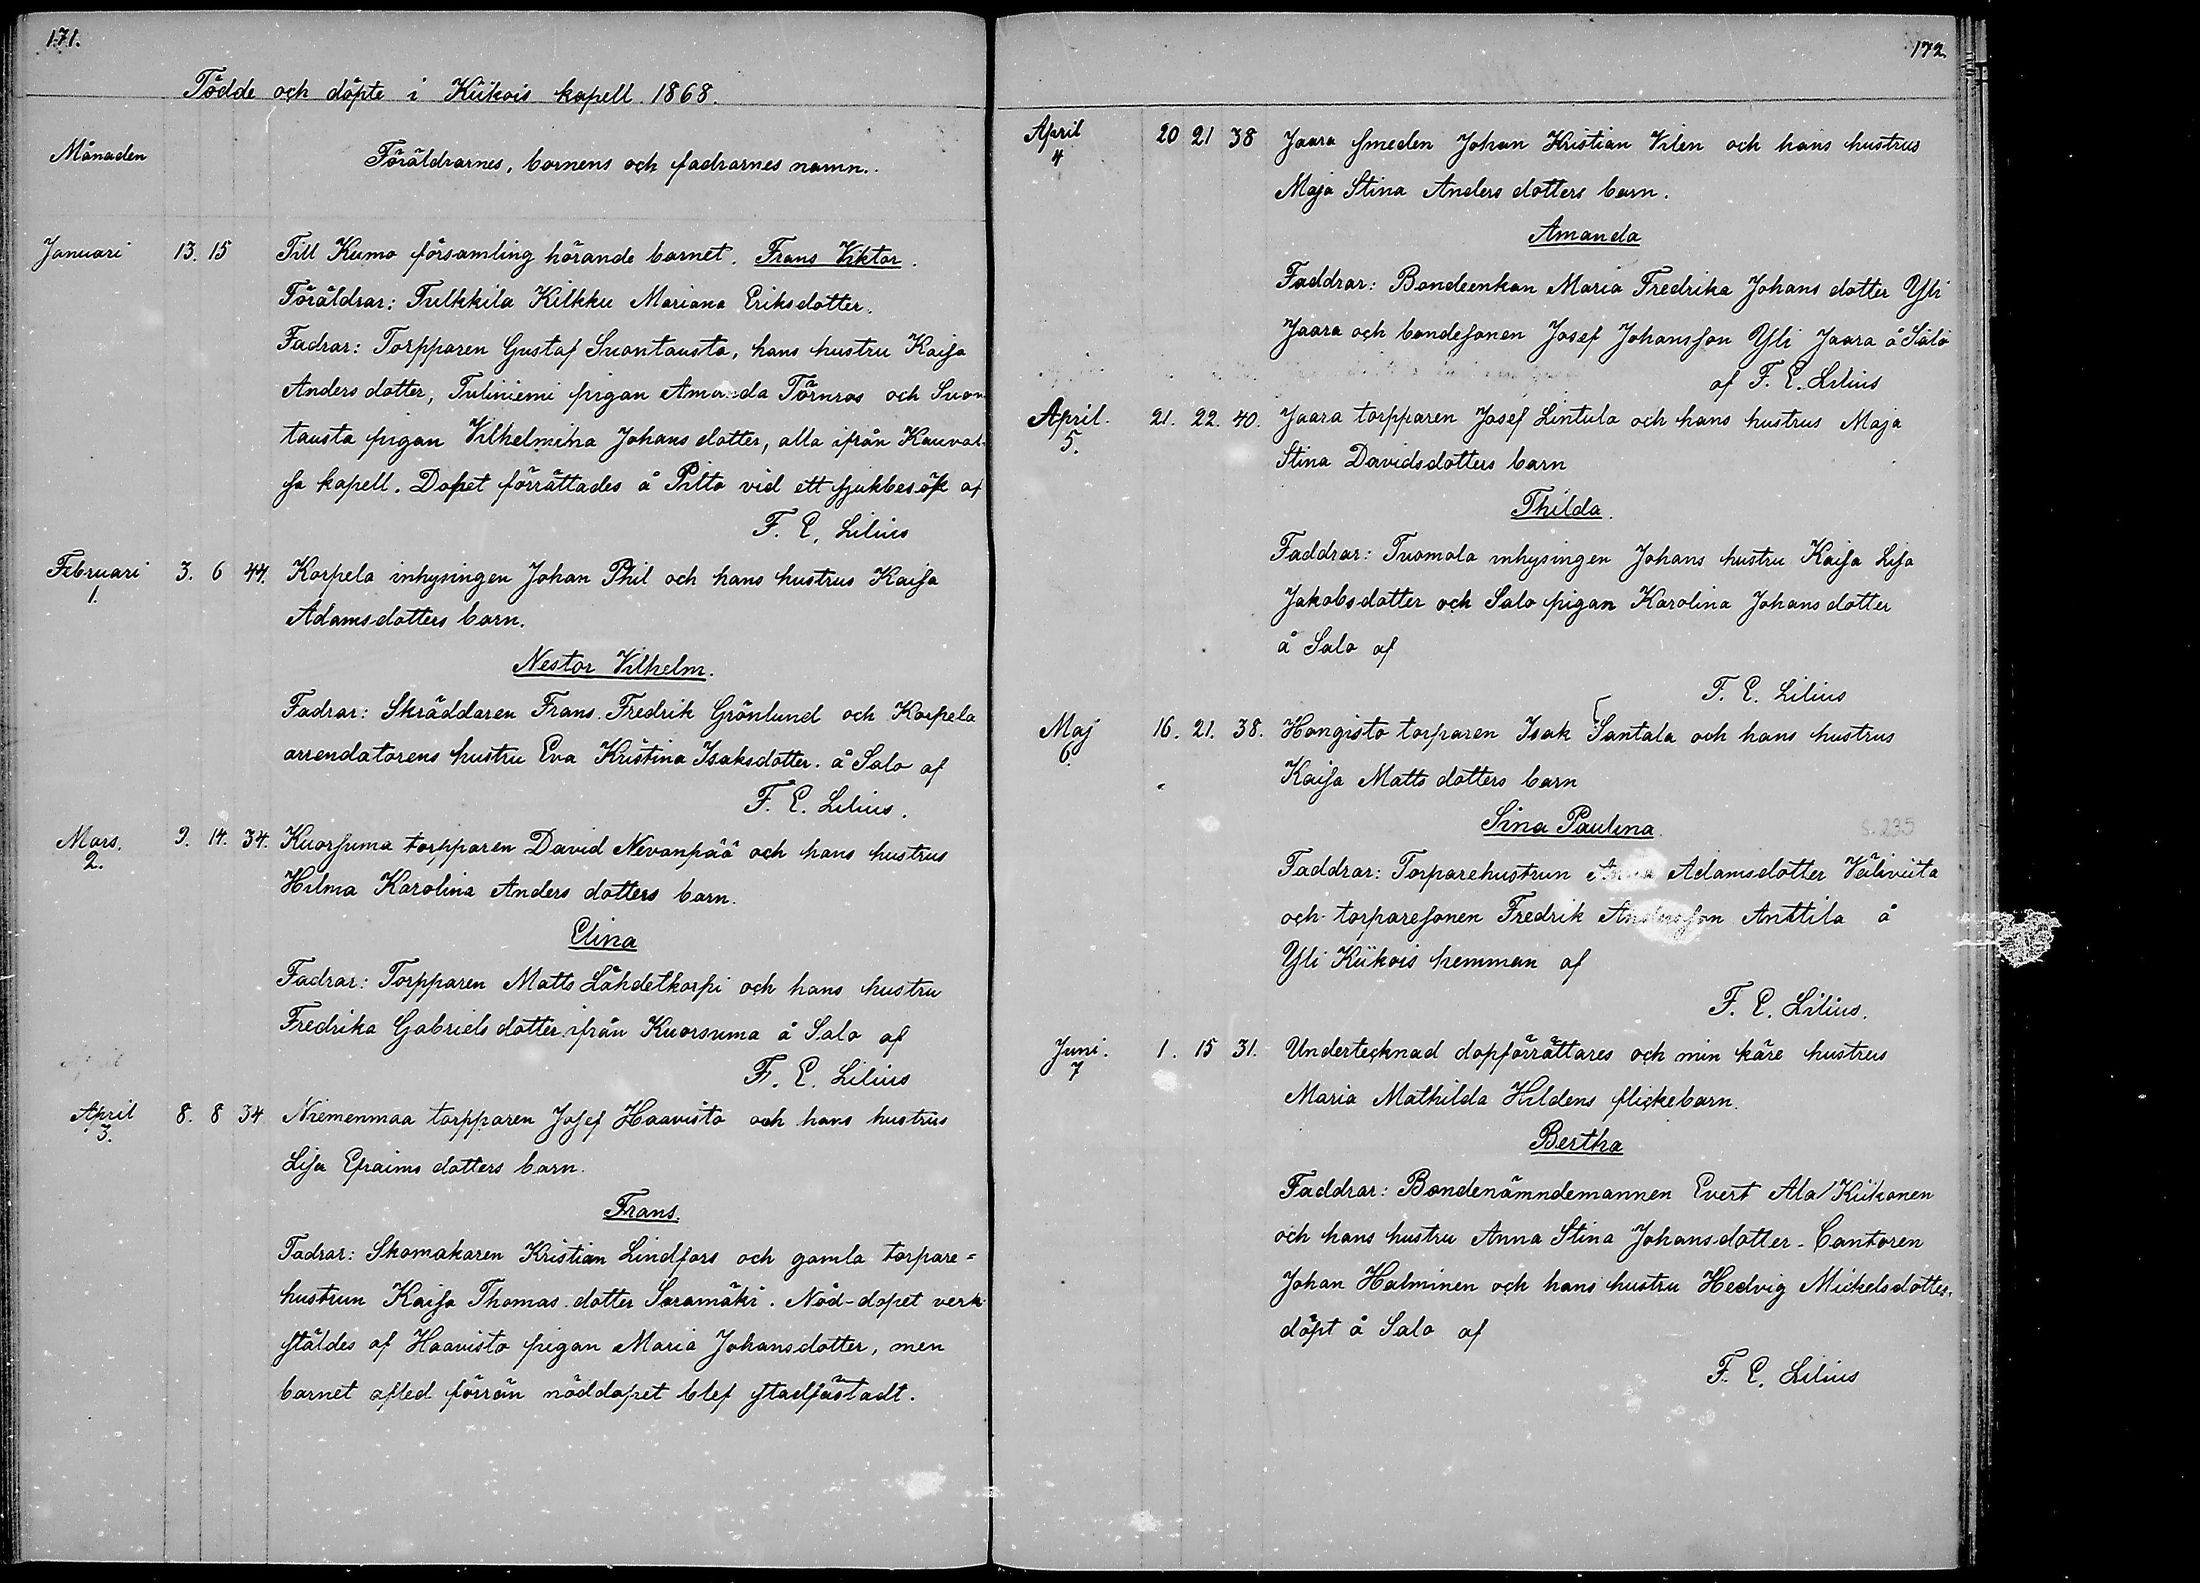 171.
Födde och döpte i Kiikois kapell 1868.
Månaden
Föräldrarnes, barnens och fadrarnes namn.
Januari 13. 15 Till Kumo församling hörande barnet. Frans Viktor.
Föräldrar: Tulkkila Kilkku Mariana Eriksdotter.
Fadrar: Torpparen Gustaf Suontausta, hans hustru Kaisa
Anders dotter, Tuliniemi pigan Amanda Törnros och Suon
tausta pigan Vilhelmina Johans dotter, alla ifrån Kauvat-
sa kapell. Dopet förrättades å Piltto vid ett sjukbesök af
F. E. Lilius
Februari 3. 6 44. Korpela inhysingen Johan Phil och hans hustrus Kaisa
1.
Adamsdotters barn.
Nestor Vilhelm.
Fadrar: Skräddaren Frans Fredrik Grönlund och Korpela
arrendatorens hustru Eva Kristina Isaksdotter. å Salo af
F. E. Lilius.
Mars. 9. 14. 34. Kuorsuma torpparen David Nevanpää och hans hustrus
2.
Hilma Karolina Anders dotters barn.
Elina
Fadrar: Torpparen Matts Lähdetkorpi och hans hustru
Fredrika Gabriels dotter ifrån Kuorsuma å Salo af
F. E. Lilius
April
April 8. 8 34 Niemenmaa torpparen Josef Haavisto och hans hustrus
3.
Lisa Efraims dotters barn.
Frans.
Fadrar: Skomakaren Kristian Lindfors och gamla torpare=
hustrun Kaisa Thomas dotter Saramäki. Nöd-dopet verk-
ställdes af Haavisto pigan Maria Johansdotter, men
barnet afled förrän nöddopet blef stadfästadt.
172.
April 20 21 38 Jaara smeden Johan Kristian Vilen och hans hustrus
4
Maja Stina Anders dotters barn.
Amanda
Faddrar: Bondeenkan Maria Fredrika Johans dotter Yli
Jaara och bondesonen Josef Johansson Yli Jaara å Salo
af F. E. Lilius
April. 21. 22. 40. Jaara torpparen Josef Lintula och hans hustrus Maja
5.
Stina Davidsdotters barn
Thilda.
Faddrar: Tuomola inhysingen Johans hustru Kaisa Lisa
Jakobsdotter och Salo pigan Karolina Johans dotter
å Salo af
F. E. Lilius
Maj 16. 21. 38. Hongisto torparen Isak Santala och hans hustrus
6.
Kaisa Matts dotters barn
Sina Paulina.
S. 235
Faddrar: Torparehustrun Anna Adamsdotter Väliviita
och torparesonen Fredrik Andersson Anttila å
Yli Kiikois hemman af
F. E. Lilius.
Juni. 1. 15 31. Undertecknad dopförrättares och min käre hustrus
7
Maria Mathilda Hildens flickebarn.
Bertha
Faddrar: Bondenämndemannen Evert Ala Kiikonen
och hans hustru Anna Stina Johansdotter. Cantoren
Johan Halminen och hans hustru Hedvig Mickelsdotter.
döpt å Salo af
F. E. Lilius